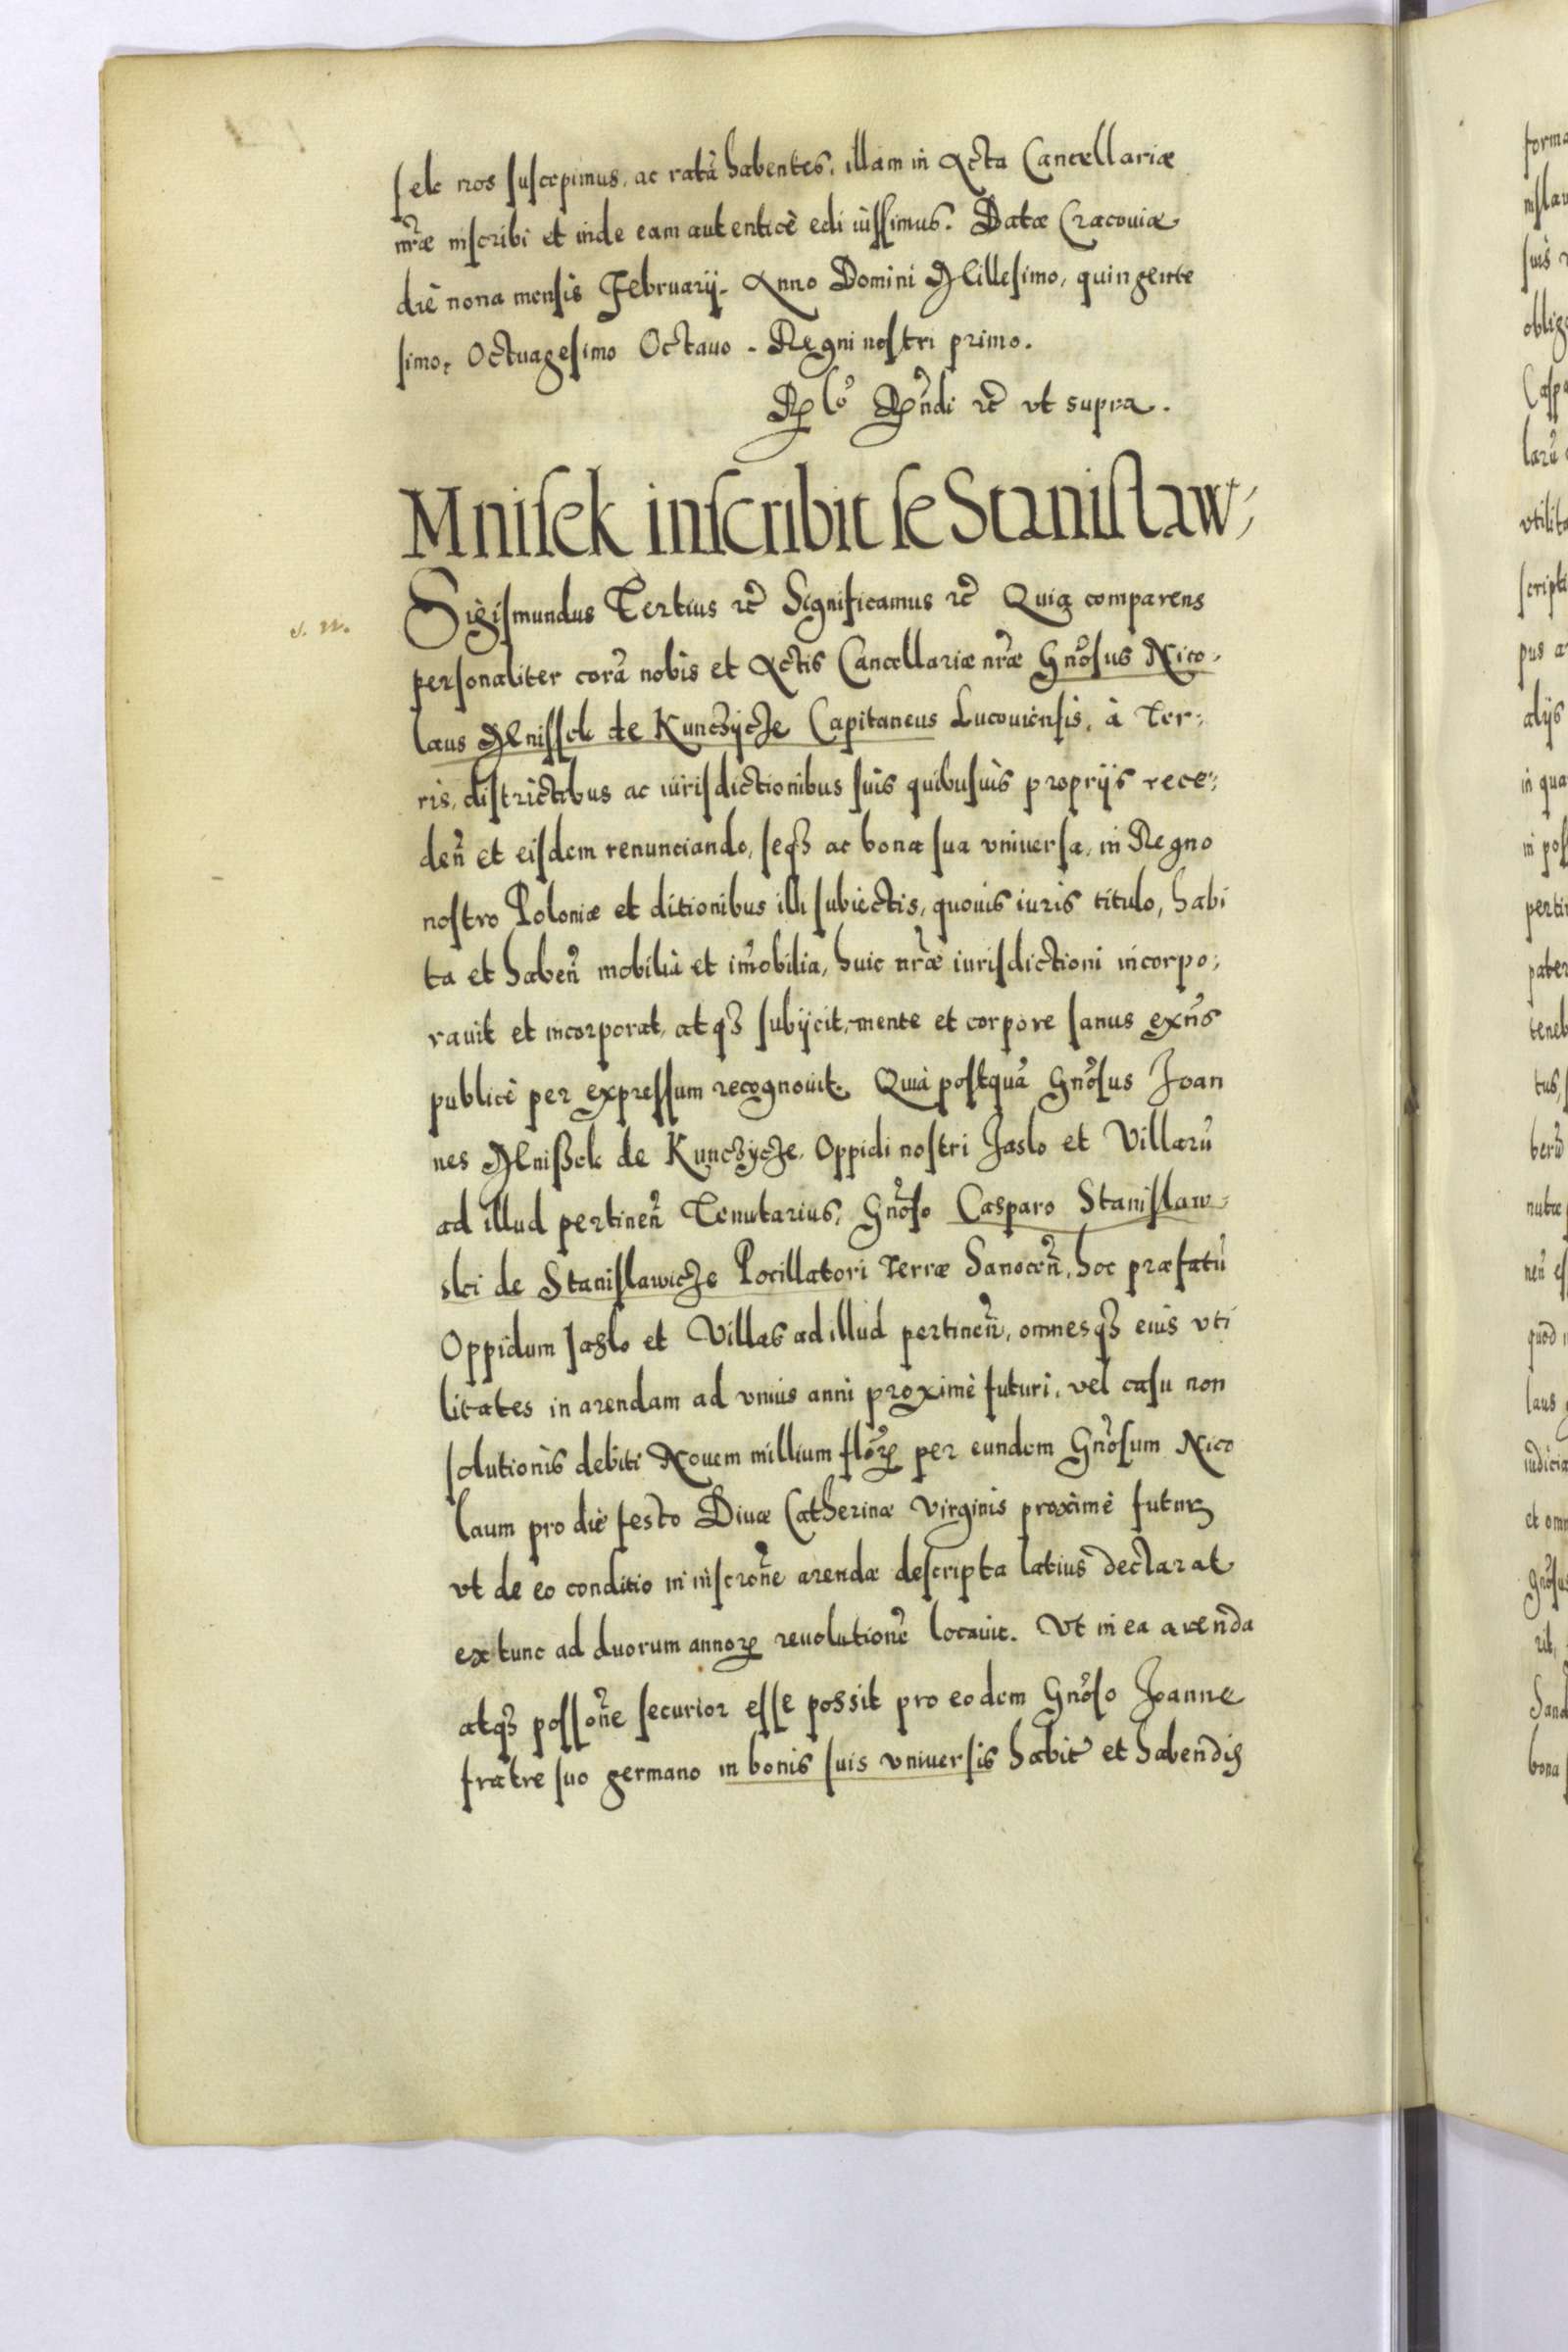 sek nos suscepimus, ac ratã habentes, illam in Acta Cancellariæ
nr̃æ inscribi et inde eam autenticè edi iussimus. Datæ Cracouiæ
die nona mensis Februarij. Anno Domini Millesimo, quingente
simo, Octuagesimo Octauo. Regni nostri primo.
Rlõ Rñdi rc̃ vt supra.
Mnisek inscribit se Stanislaw,
s. n.
Sigismundus Tertius rc̃ Significamus rc̃ Quia comparens
personaliter corã nobis et Actis Cancellariæ nr̃æ Gnõsus Nico-
laus Mnissek de Kunczycze Capitaneus Lucouiensis, à Ter:
ris, districtibus ac iurisdictionibus suis quibusuis proprijs rece:
deñ et eisdem renunciando, seqz ac bona sua vniuersa, in Regno
nostro Poloniæ et ditionibus illi subiectis, quouis iuris titulo, habi
ta et habeñ mobilia et im̃obilia, huic nr̃æ iurisdictioni incorpo:
rauit et incorporat, atqz subijcit, mente et corpore sanus exñs
publicè per expressum recognouit. Quia postquã Gnõsus Joan
nes Mnißek de Kunczycze, Oppidi nostri Jaslo et Villarũ
ad illud pertineñ Tenutarius, Gnõso Casparo Stanislaw-
ski de Stanislawicze Pocillatori Terræ Sanoceñ, hoc præfatũ
Oppidum Jaslo et Villas ad illud pertineñ, omnesqz eius vti
litates in arendam ad vnius anni proximè futuri, vel casu non
solutionis debiti Nouem millium florꝝ per eundem Gnõsum Nico
laum pro die festo Diuæ Catherinæ Virginis proximè futurꝫ
vt de eo conditio in inscrõne arendæ descripta latius declarat
extunc ad duorum annoꝝ reuolutionẽ locauit. Vt in ea arenda
atqz possõne securior esse possit pro eodem Gnõso Joanne
fratre suo germano in bonis suis vniuersis habit̃ et habendis